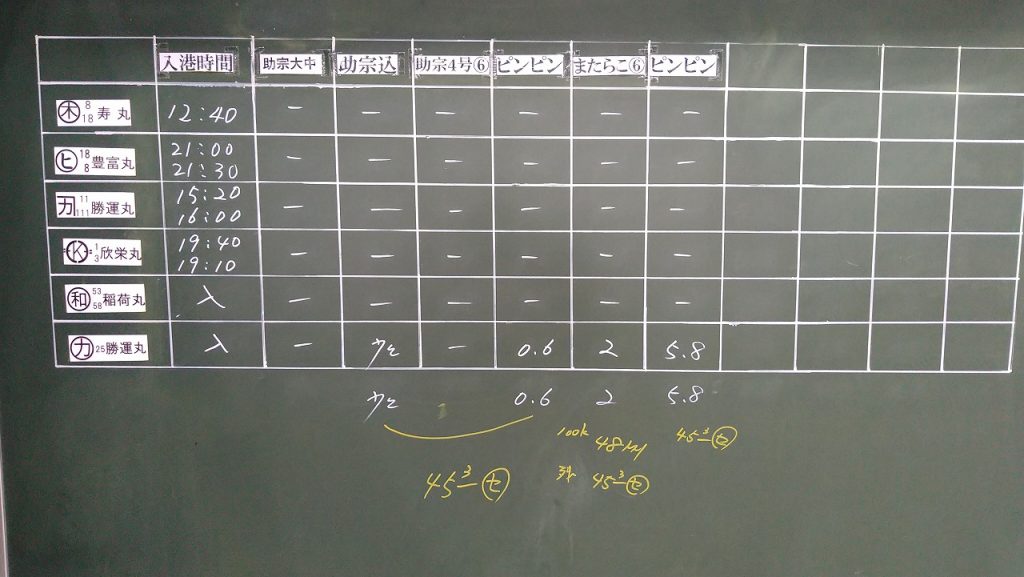 入港時間 助宗大中 助宗込 助宗4号⑥ ピンピン またらこ⑥ ピンピン
木 8 18 寿丸 12:40 － － － － － －
ヒ 18 8 豊富丸 21:00 21:30 － － － － － －
カ 11 111 勝運丸 15:20 16:00 － － － － － －
K 1 3 欣栄丸 19:40 19:10 － － － － － －
和 53 58 稲荷丸 入 － － － － － －
カ 25 勝運丸 入 － － 0.6 2 5.8
0.6 2 5.8
100k 45 3 セ
45 3 セ 45 3 セ